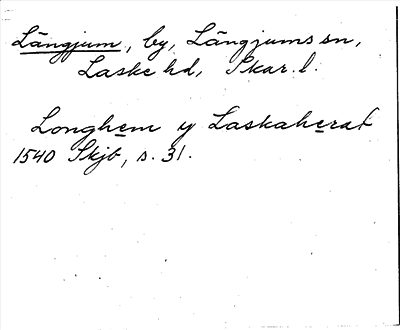 Längjum, by, Längjums sn,
Laske hd, Skar. l.
Longhem y Laskaherat
1540 Skjb, s. 31.